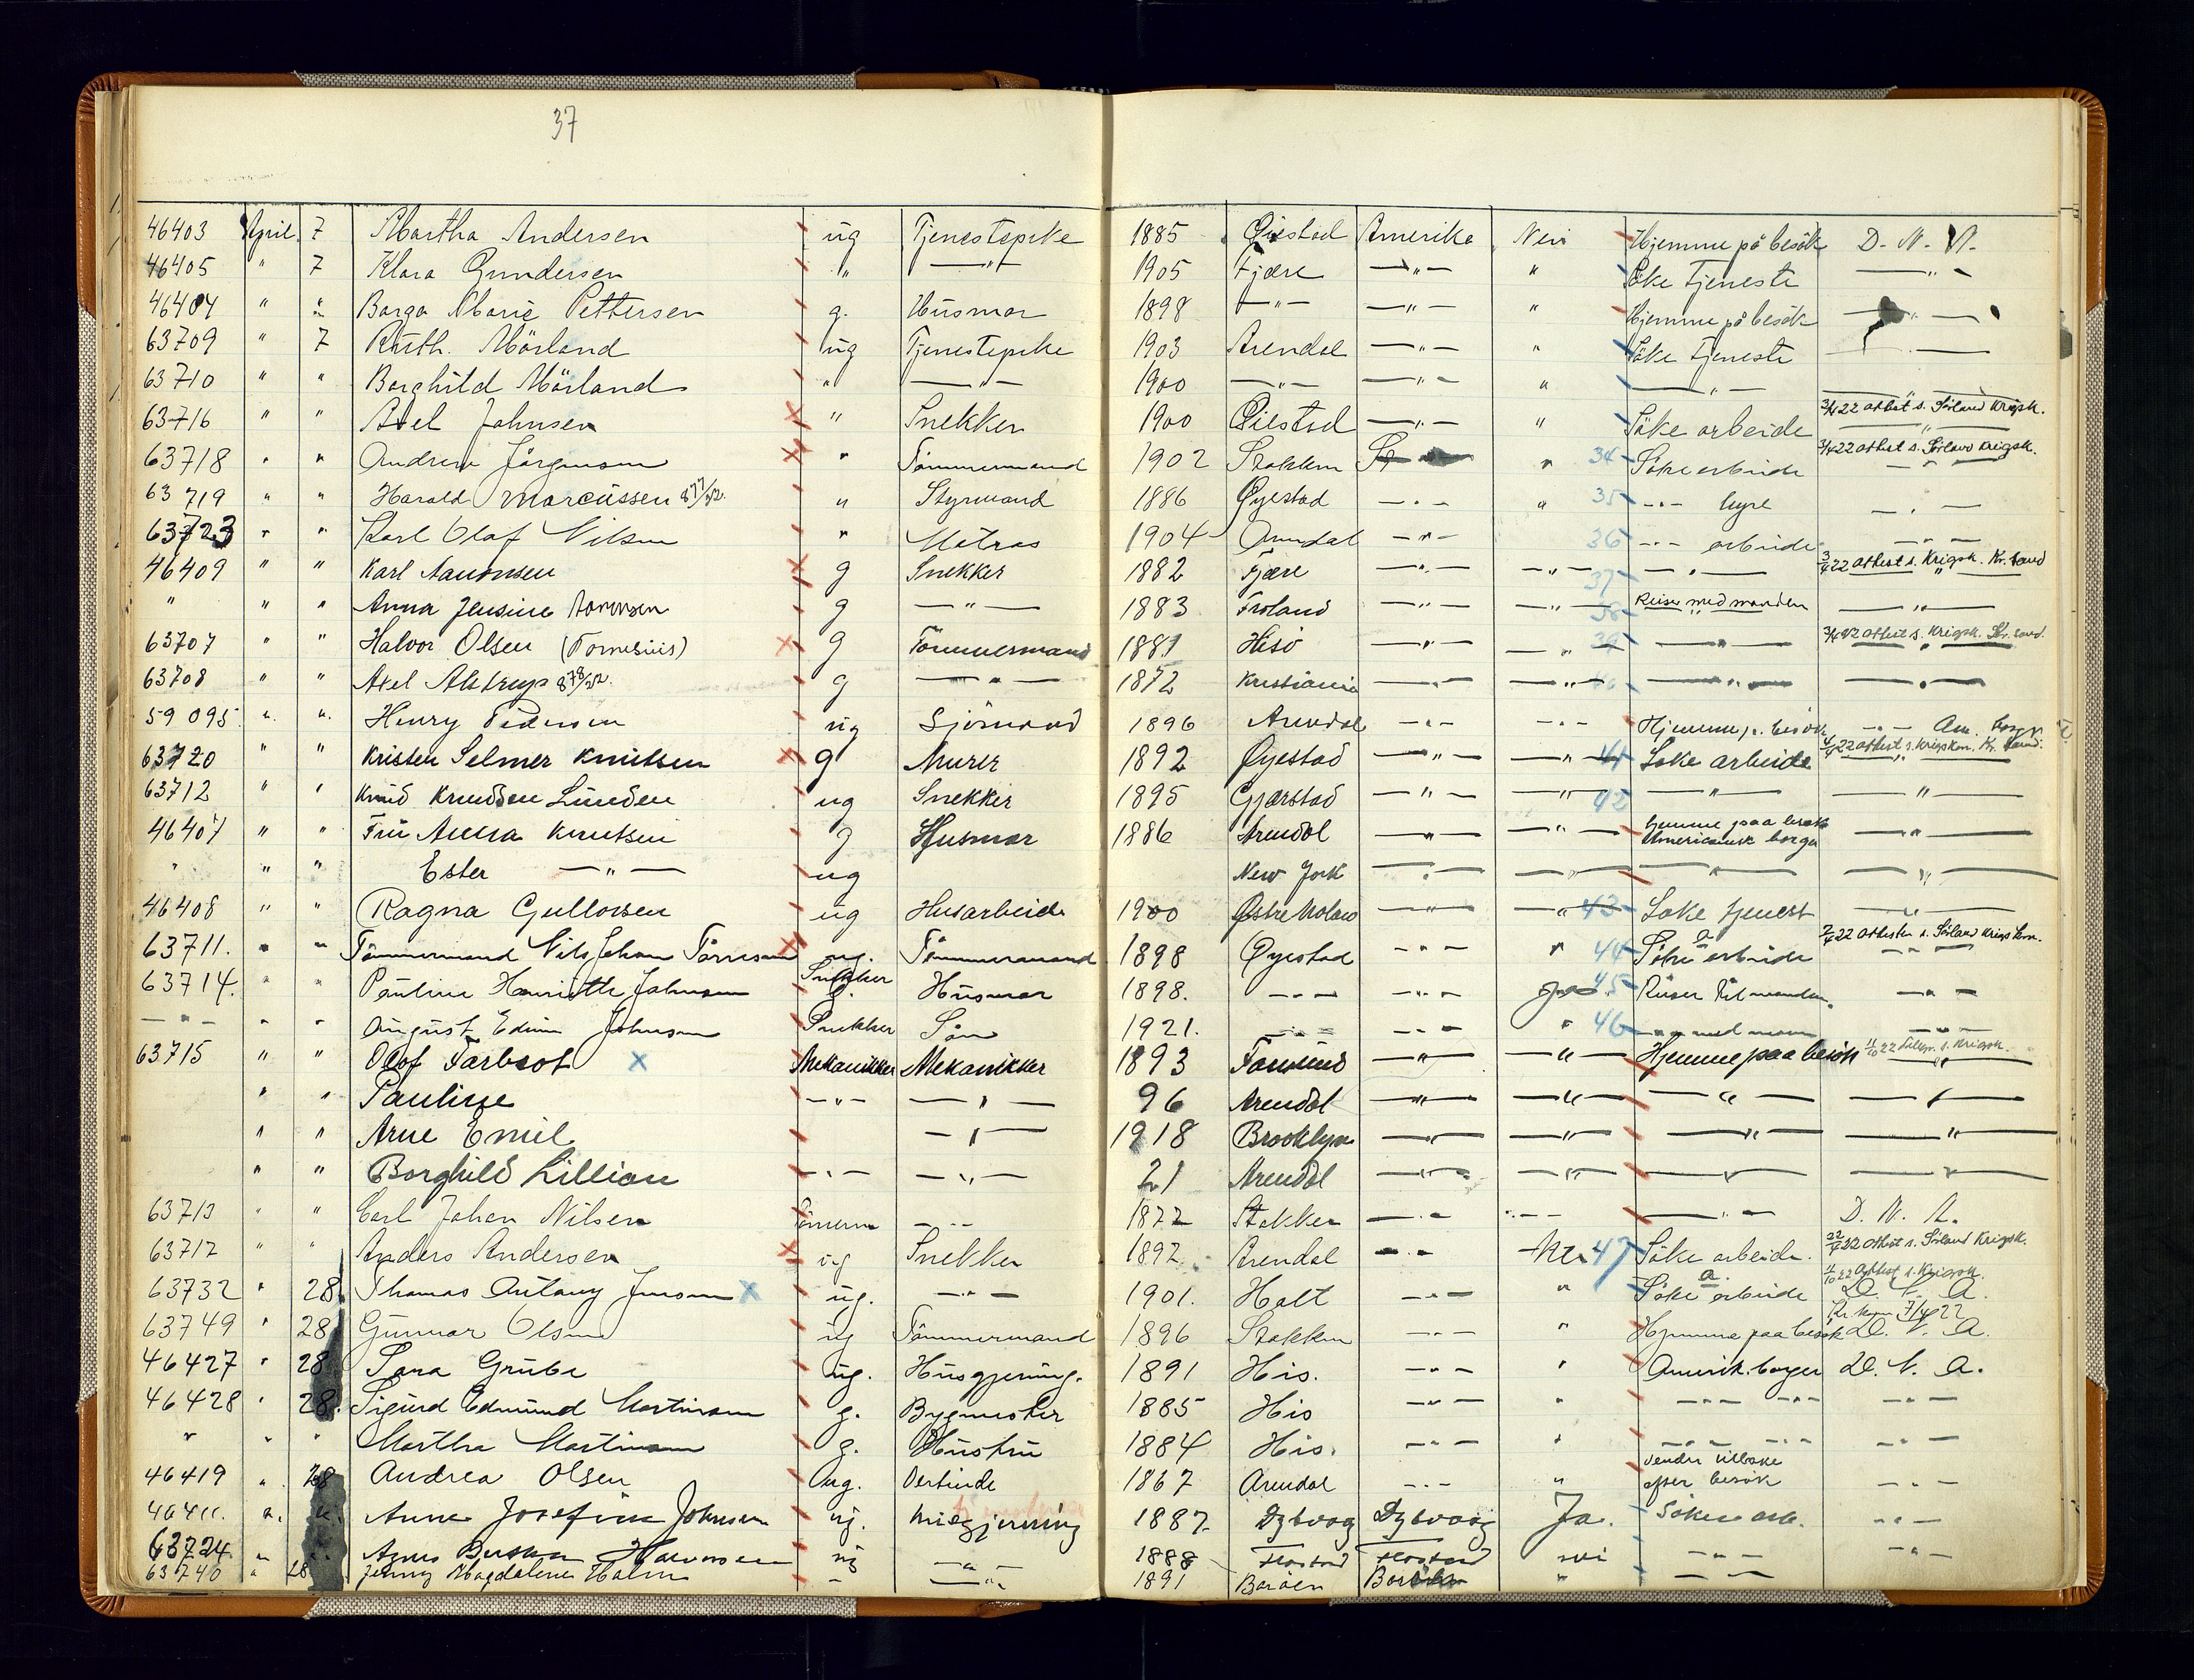 37
46403 April 7 Martha Andersen ug Tjenestepike 1885 Øiestad Amerika Nei Hjemme på besök D. N. A.
46405 " 7 Klara Gundersen " —"— 1905 Fjære —"— " Söke tjeneste —"—
46404 " " Borga Marie Pettersen g. Husmor 1898 —"— —"— " Hjemme på besök —"—
63709 " 7 Ruth. Mörland ug Tjenestepike 1903 Arendal —"— " Söke tjeneste —"—
63710 " " Borghild Mörland " —"— 1900 —"— —"— " —"— —"—
63716 " " Axel Johnsen " Snekker 1900 Øiestad —"— " Söke arbeide 3/4 22 attest s. Sörland Krigsk. —"—
63718 " " Andrew Jörgensen " Tömmermand 1902 Stokken " 34 Söke arbeide 3/4 22 attest s. Sörland Krigsk. —"—
63719 " " Harald Marcussen " Styrmand 1886 Øyestad —"— " 35 —"— hyre —"—
63723 " " Karl Olaf Nilsen " Matros 1904 Arendal —"— 36 —"— arbeide —"—
46409 " " Karl Aanonsen g Snekker 1882 Fjære —"— —"— 37 —"— 3/4 22 attest s. Krigsk. Kr. sand —"—
" " " Anna Jensine Aanonsen g —"— 1883 Froland —"— —"— 38 Reise med manden —"—
63707 " " Halvor Olsen (Tornesius) g Tömmermand 1881 Hisö —"— —"— 39 —"— 3/4 22 attest s. Krigsk. Kr. sand. —"—
63708 " " Axel Alstrup g —"— 1872 Kristiania —"— —"— —"— —"—
59095 " " Henry Pedersen ug Sjömand 1896 Arendal —"— —"— Hjemme p. besök —"— Am. borger
63720 " " Kristen Selmer Knutsen g Murer 1892 Øyestad —"— —"— 41 Söke arbeide 4/4 22 attest s. Krigskom. Kr. sand. —"—
63712 " " Knud Knudsen Lunden ug Snekker 1895 Gjerstad —"— —"— 42 —"— —"—
46407 " " Fru Anna Knutsen g Husmor 1886 Arendal —"— —"— hjemme paa besök Americansk borger —"—
" " " Ester —"— ug New York —"— —"— —"— —"—
46408 " " Ragna Gullorsen ug Husarbeide 1900 Østre Moland —"— —"— 43 Söke tjenest —"—
63711. " " Tömmermand Nils Johan Törresen ug. Tömmermand 1898 Øyestad —"— " 44 Söke arbeide —"—
63714. " " Pauline Henriette Johnsen Snekker g. Husmor 1898. —"— —"— 45 Reiser til manden. —"—
—"— " " August Edvin Johnsen Snekker Sön 1921. —"— —"— " 46 —"— med mor —"—
63715 " " Olof Tarbrot Mekanikker Mekanikker 1893 —"— —"— Hjemme paa besök —"—
" " Pauline —"— —"— 96 Arendal —"— —"— —"— —"—
" " Arne Emil —"— 1918 Brooklyn —"— —"— —"— —"—
" " Borghild Lillian —"— —"— 21 Arendal —"— —"— —"— —"—
63713 " " Carl Johan Nilsen —"— 1872 Stokken —"— —"— —"— D. N. A.
63717 " " Anders Andersen ug Snekker 1892 Arendal —"— Nei 47 Söke arbeide. 22/4 22 attest s. Sörland Krigsk.
63732 " 28 Thomas Antony Jensen ug. —"— 1901. Holt —"— " Söke arbeide 11/10 22 attest s. Krigsk. D. N. A.
63749 " 28 Gunnar Olsen ug Tömmermand 1896 Stokken —"— " Hjemme paa besök D. N. A.
46427 " 28 Sara Grube ug. Husgjerning. 1891 His. —"— " Amerik. borger D. N. A.
46428 " 28. Sigurd Edmund Martinsen g. Bygmester 1885 His —"— " —"— —"— —"—
" " " Martha Martinsen g. Hustru 1884 His. —"— " —"— —"— —"—
46419 " 28 Andrea Olsen ug. Værtinde 1867 Arendal —"— " vender tilbake efter besök —"—
46411. " " Anne Josefine Johnsen ug. husgjerning 1887. Dybvaag Dybvaag Ja. Söker arb. —"—
63724. " " Halvorsen ug —"— 1888 Flostad Flostad nei —"— —"—
63740 " 28 Jenny Magdalene Holm " —"— 1891 Boröen " —"—